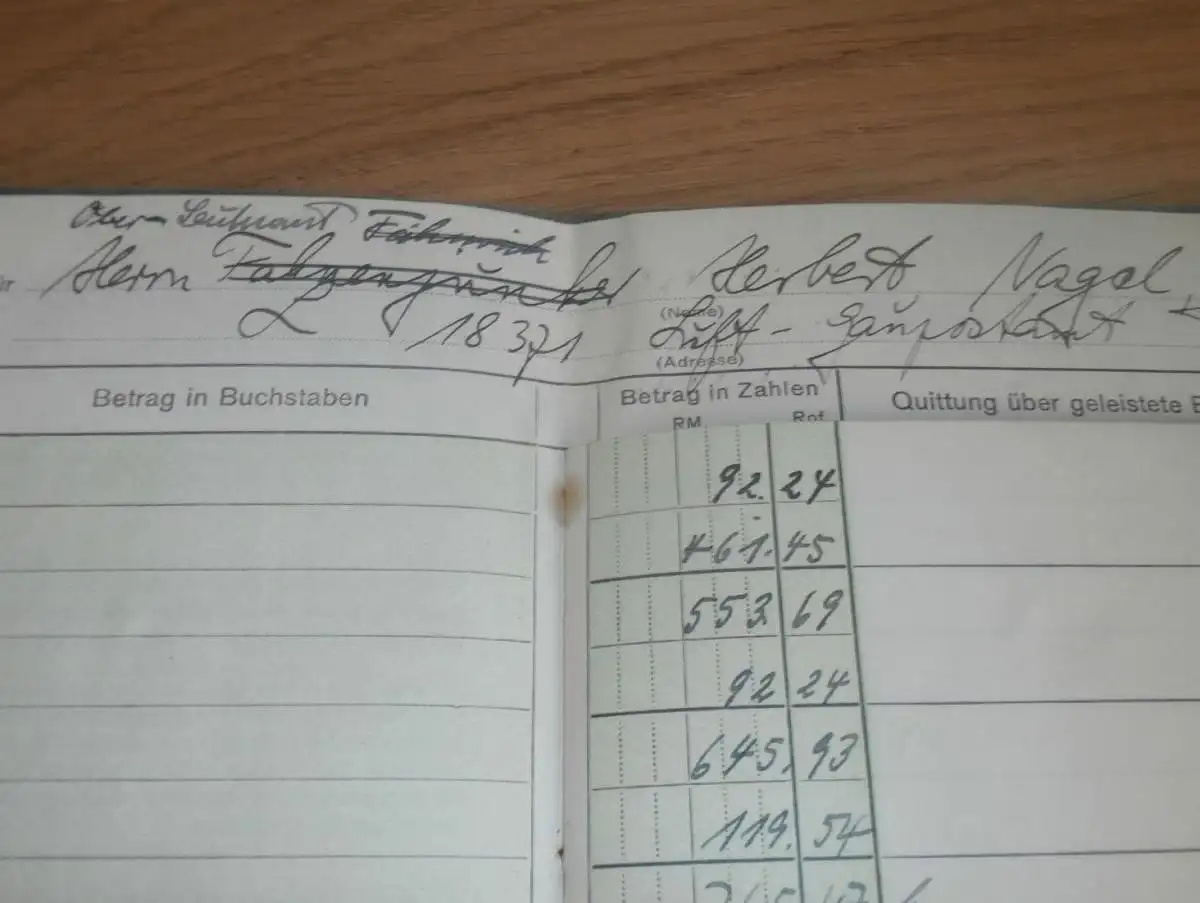 Ober-Leutnant Fähnrich
Herrn Fahnenjunker Herbert Nagel
(Name)
L 18371 Luft-Gaupostamt
(Adresse)
Betrag in Buchstaben Betrag in Zahlen Quittung über geleistete
RM Rpf.
92. 24
461. 45
553. 69
92 24
645. 93
119. 54